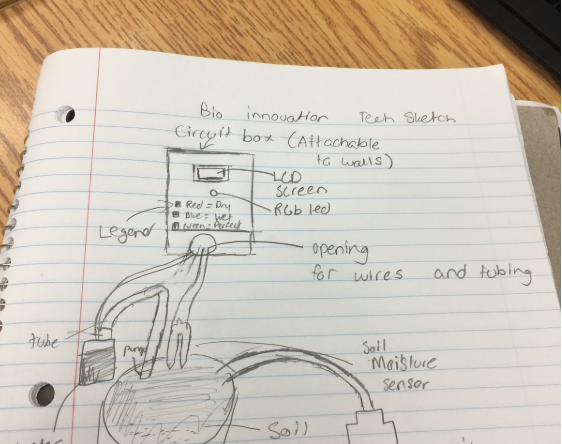 Bio innovation Tech Sketch
Circuit box (Attachable
to walls)
LCD
screen
RGb led
Red = Dry
Blue = Wet
Green = Perfect
Legend
opening
for wires and tubing
tube
pump
Soil
Moisture
sensor
Soil